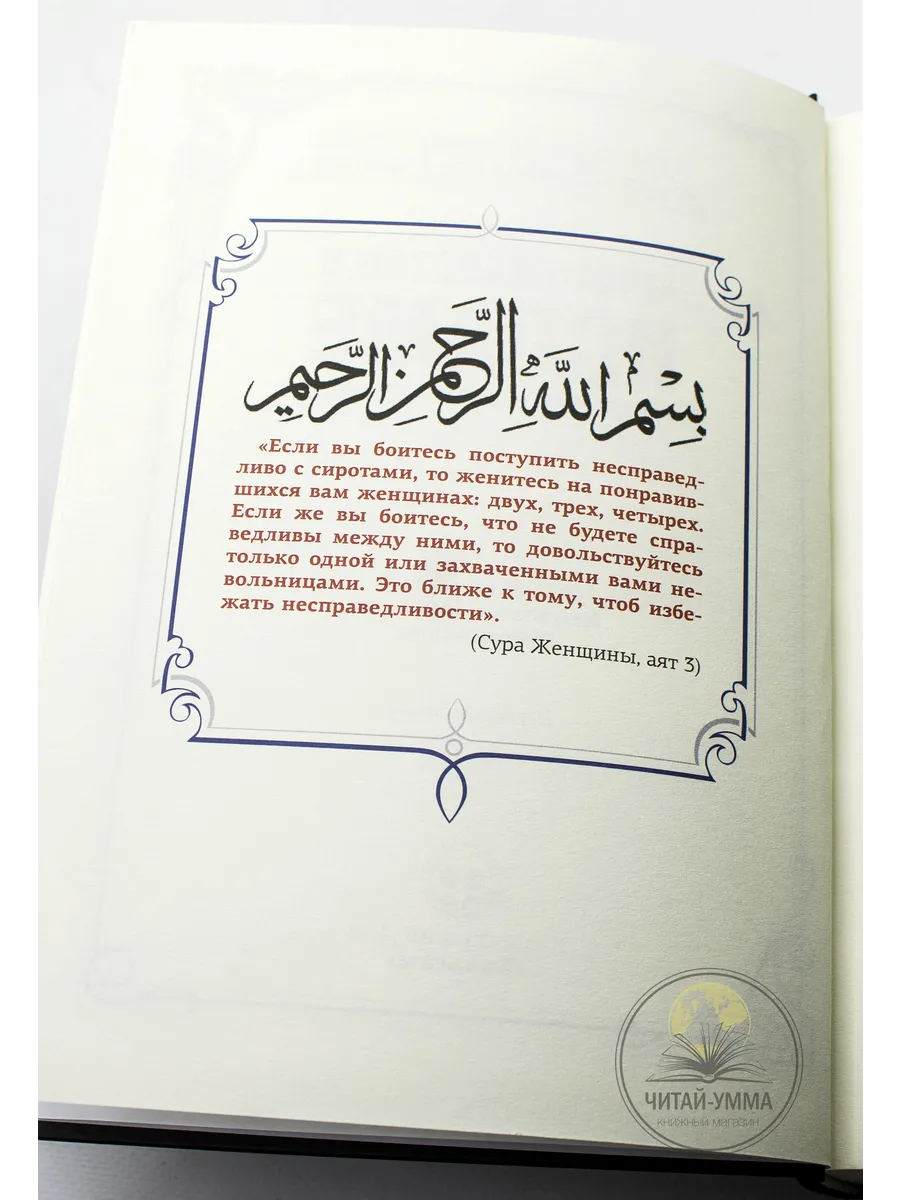 بِسْمِ اللهِ الرَّحْمٰنِ الرَّحِيمِ
«Если вы боитесь поступить несправед-
ливо с сиротами, то женитесь на понравив-
шихся вам женщинах: двух, трех, четырех.
Если же вы боитесь, что не будете спра-
ведливы между ними, то довольствуйтесь
только одной или захваченными вами не-
вольницами. Это ближе к тому, чтоб избе-
жать несправедливости».
(Сура Женщины, аят 3)
ЧИТАЙ-УММА
КНИЖНЫЙ МАГАЗИН